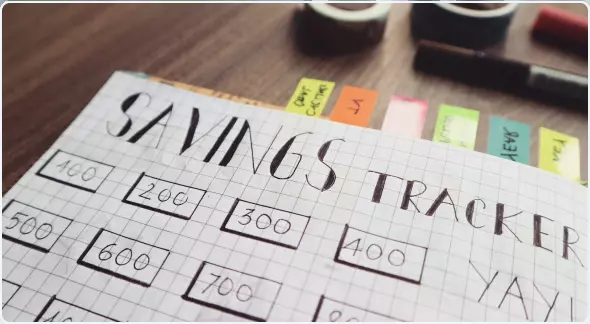 SAVINGS TRACKER
100 200 300 400
YAY!
500 600 700